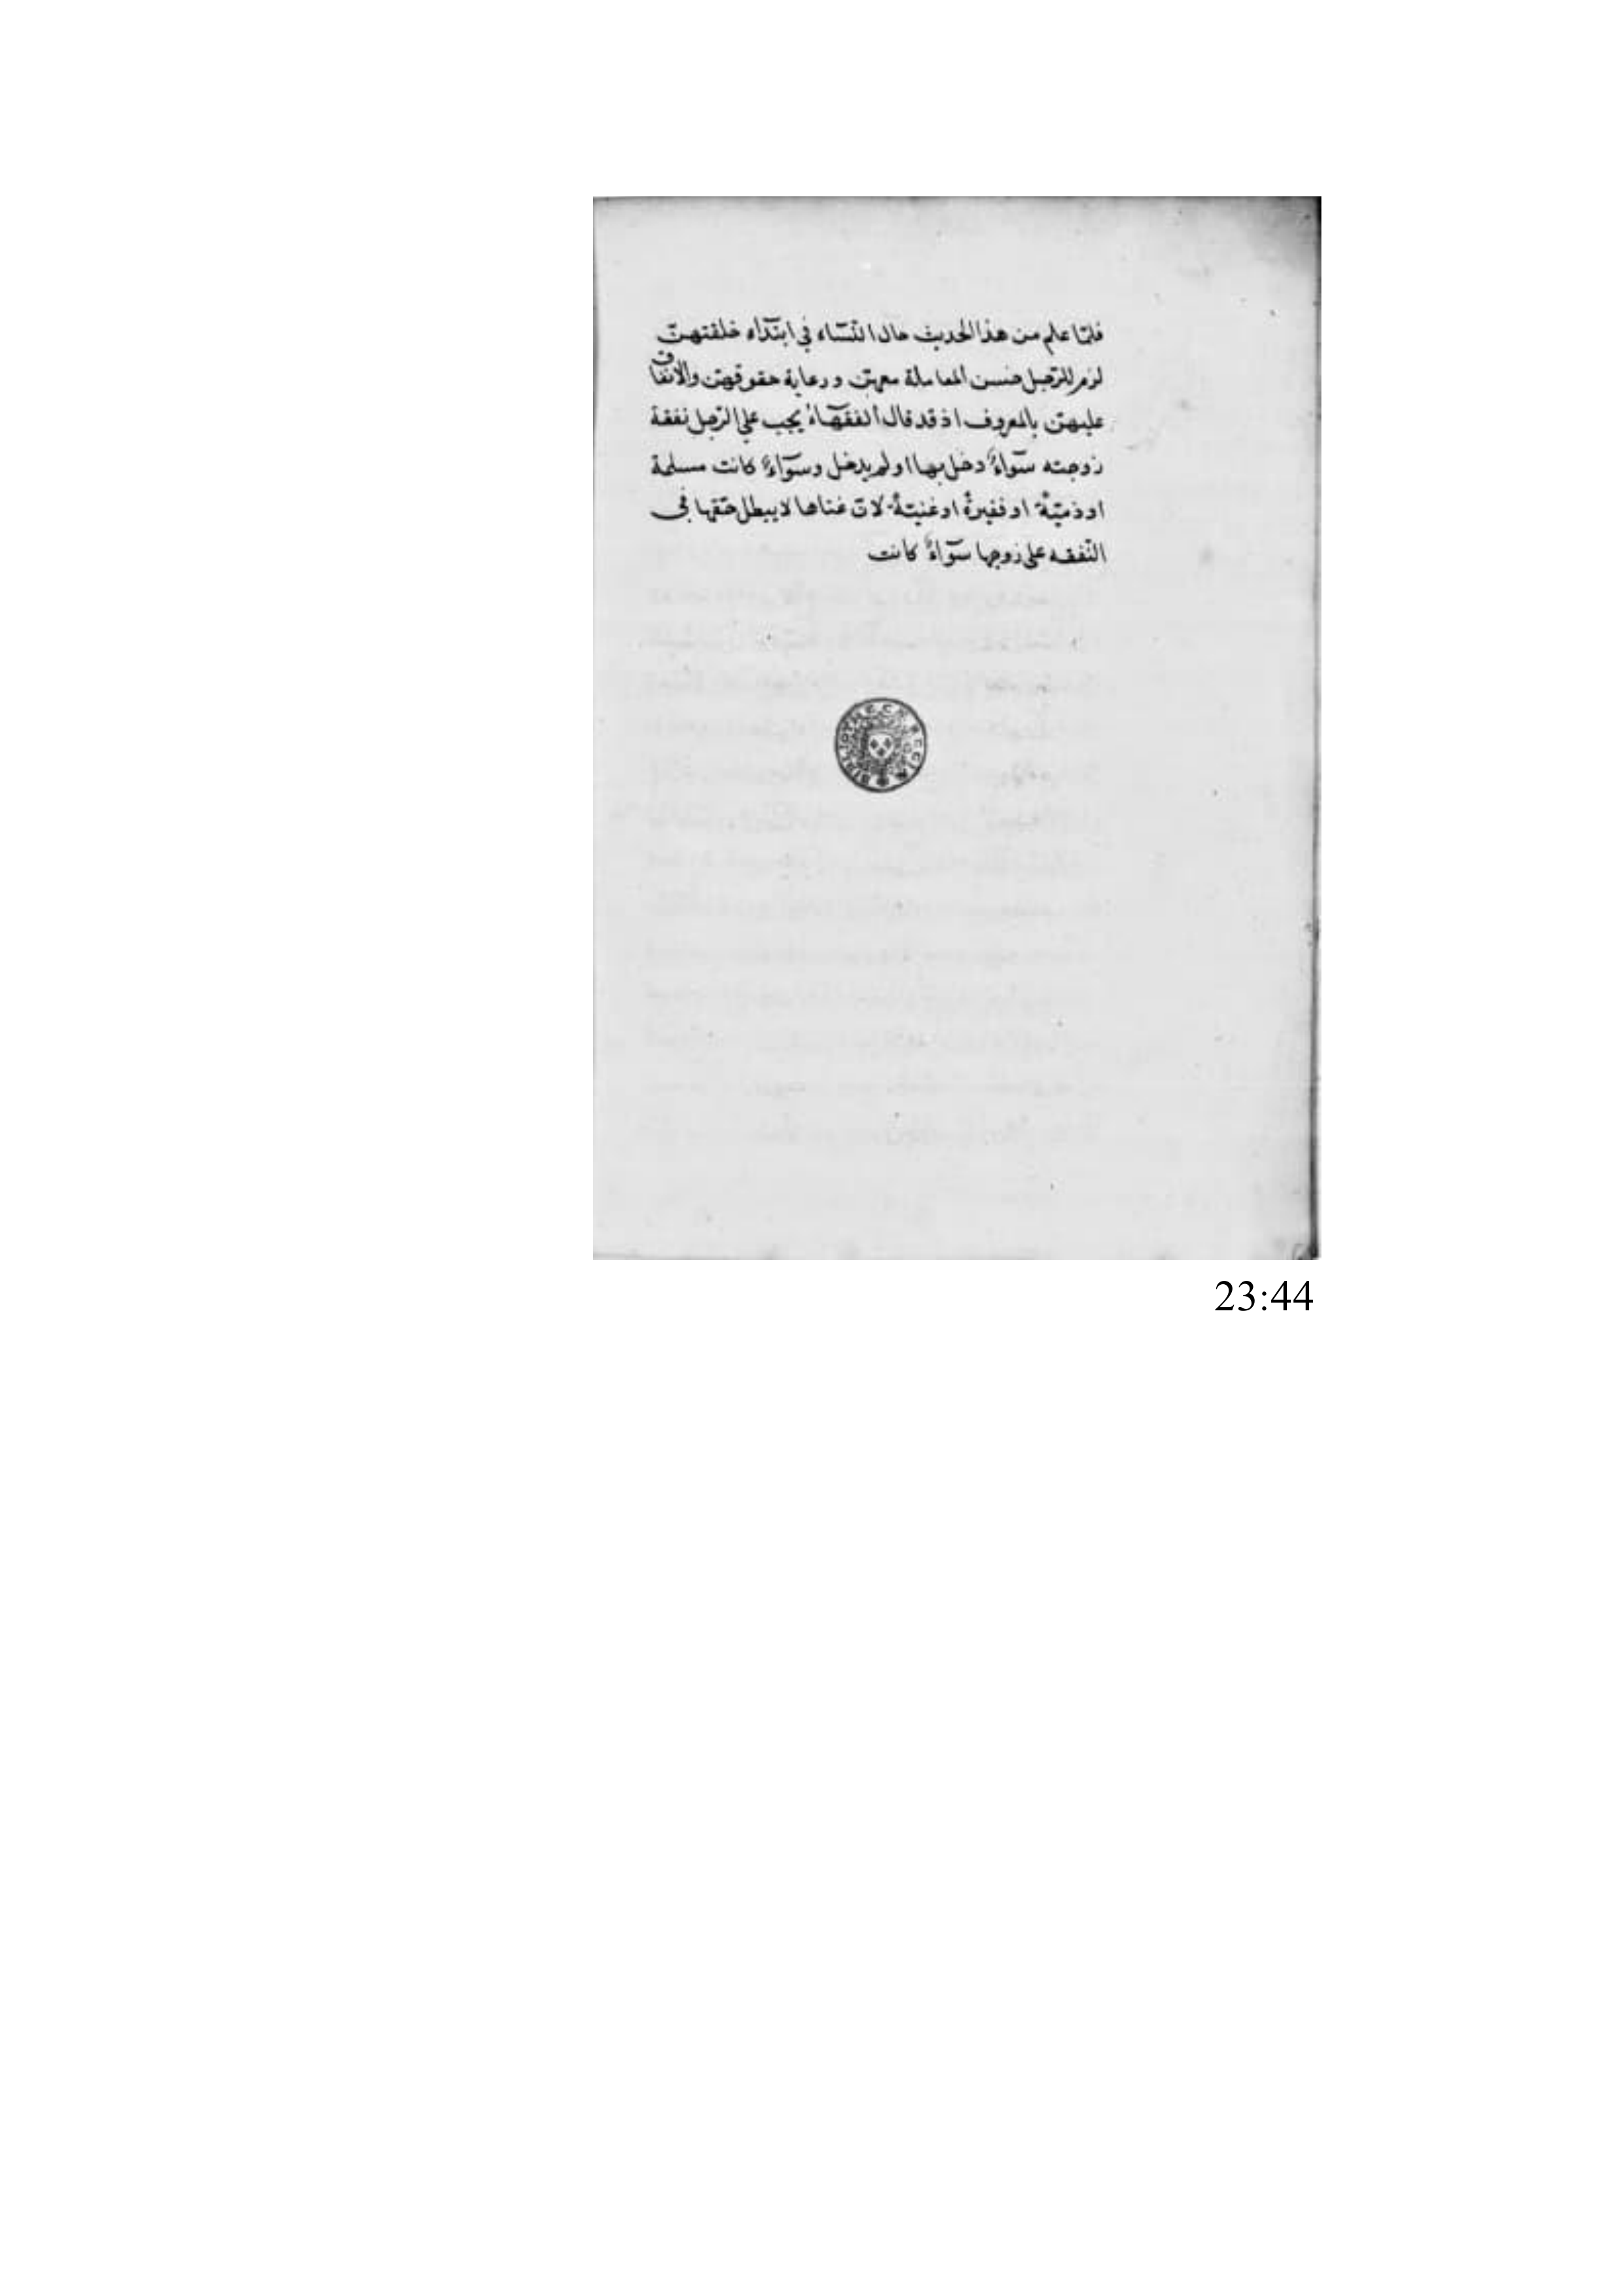 فلمّا علم من هذا الحديث حال النّسَآء في ابتدَآء خلقتهنّ
لزم للرّجل حسن المعاملة معهنّ ورعاية حقوقهنّ والانفاق
عليهنّ بالمعروف اذ قد قال الفقهَآءُ يجب علي الرّجل نفقة
زوجته سوَآءٌ دخل بها او لم يدخل وسوَآءٌ كانت مسلمة
او ذميّة او فقيرةً او غنيّةً لانّ غناها لا يبطل حقّها في
النّفقه على زوجها سوَآءٌ كانت
BIBLIOTHECÆ REGIÆ
23:44